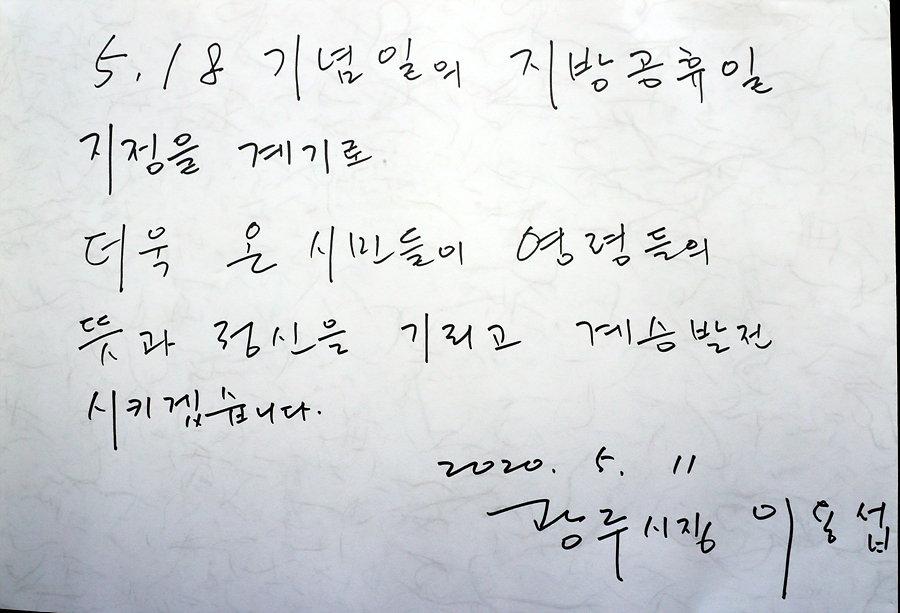 5.18 기념일의 지방공휴일
지정을 계기로
더욱 온 시민들이 영령들의
뜻과 정신을 기리고 계승발전
시키겠습니다.
2020. 5. 11
광주시장 이용섭